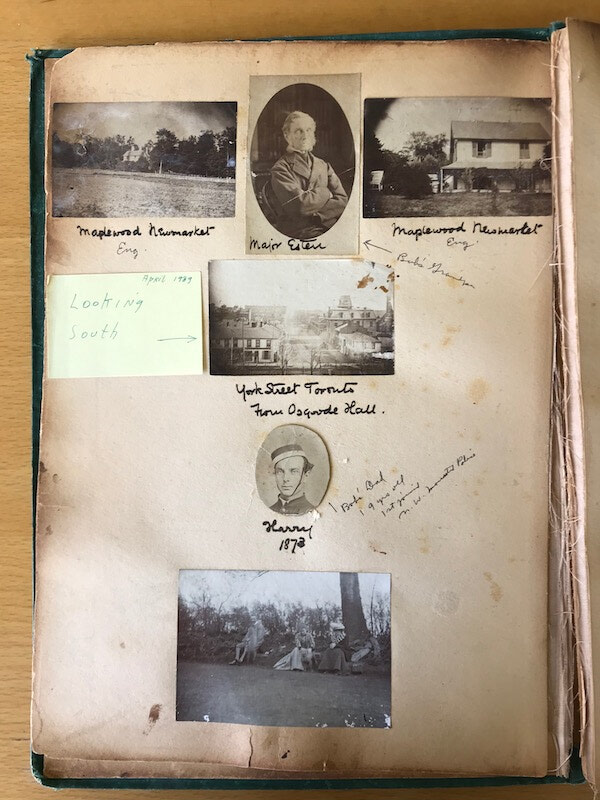 Maplewood Newmarket
Eng.
Major Esten
Maplewood Newmarket
Eng.
Bob's Grandpa
April 1989
Looking
South
York Street Toronto
From Osgoode Hall.
Harry
1873
Bob's Dad
19 yrs old
1st joined
N. W. Mounted Police